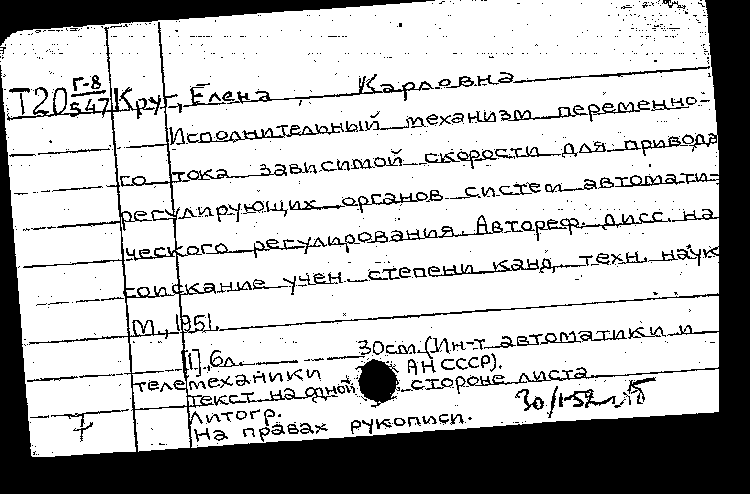 Т20 Г-8/547 Круг, Елена Карловна
Исполнительный механизм переменно-
го тока зависимой скорости для привода
регулирующих органов систем автомати-
ческого регулирования. Автореф. дисс. на
соискание учен. степени канд. техн. наук
М., 1951.
[1], 6л. 30см. (Ин-т автоматики и
телемеханики АН СССР).
Текст на одной стороне листа.
Литогр.
На правах рукописи.
7